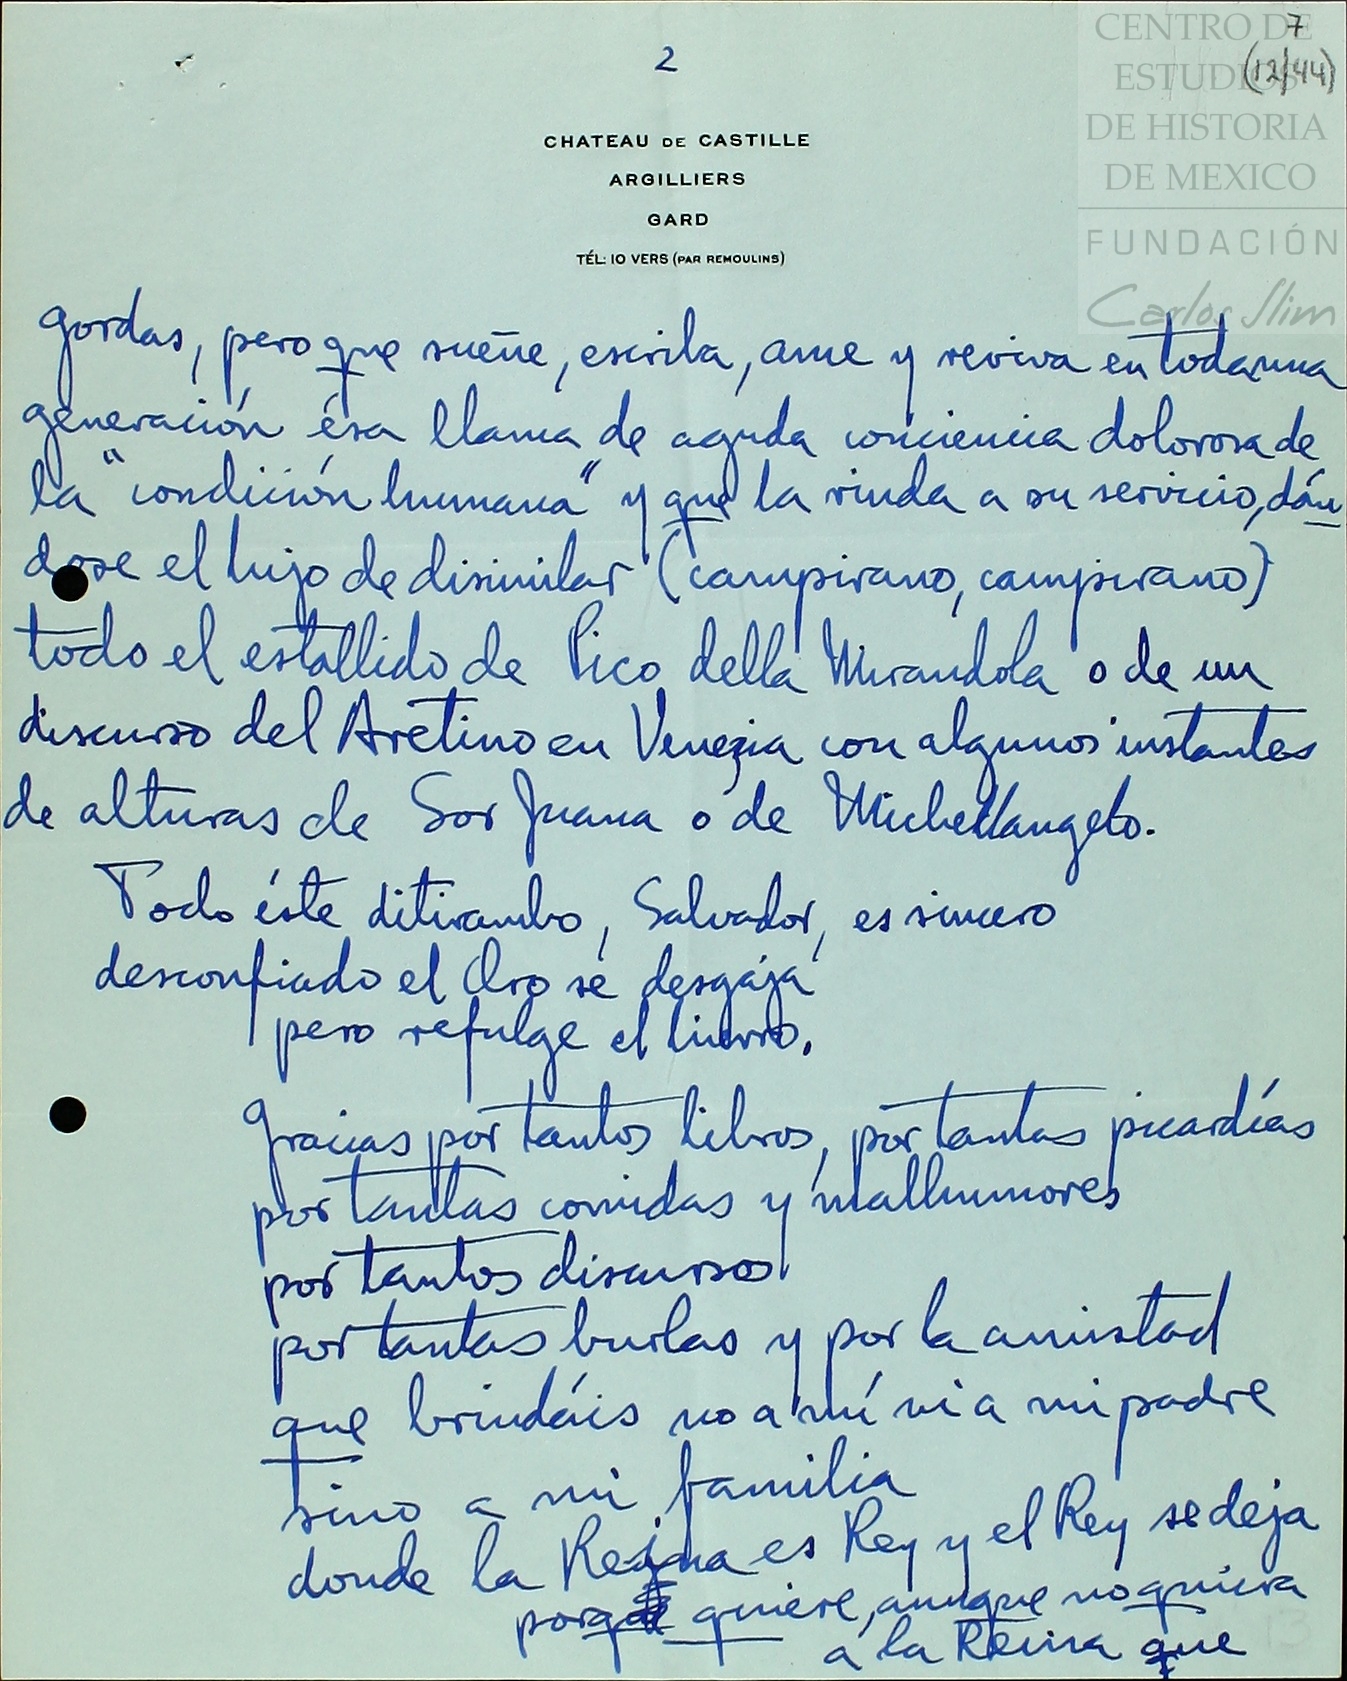 2
7
(12/44)
CENTRO DE
ESTUDIOS
DE HISTORIA
DE MEXICO
FUNDACIÓN
Carlos Slim
CHATEAU DE CASTILLE
ARGILLIERS
GARD
TÉL: 10 VERS (PAR REMOULINS)
gordas, pero que sueñe, escriba, ame y reviva en toda una
generación ésa llama de aguda conciencia dolorosa de
la "condición humana" y que la rinda a su servicio, dán
dose el lujo de disimilar (campirano, campirano)
todo el estallido de Pico della Mirandola o de un
discurso del Aretino en Venezia con algunos instantes
de alturas de Sor Juana o de Michellangelo.
Todo éste ditirambo, Salvador, es sincero
desconfiado el Oro se desgaja
pero refulge el hierro.
Gracias por tantos libros, por tantas picardías
por tantas comidas y malhumores
por tantos discursos
por tantas burlas y por la amistad
que brindáis no a mí ni a mi padre
sino a mi familia
donde la Reina es Rey y el Rey se deja
porque quiere, aunque no quiera
a la Reina que
13